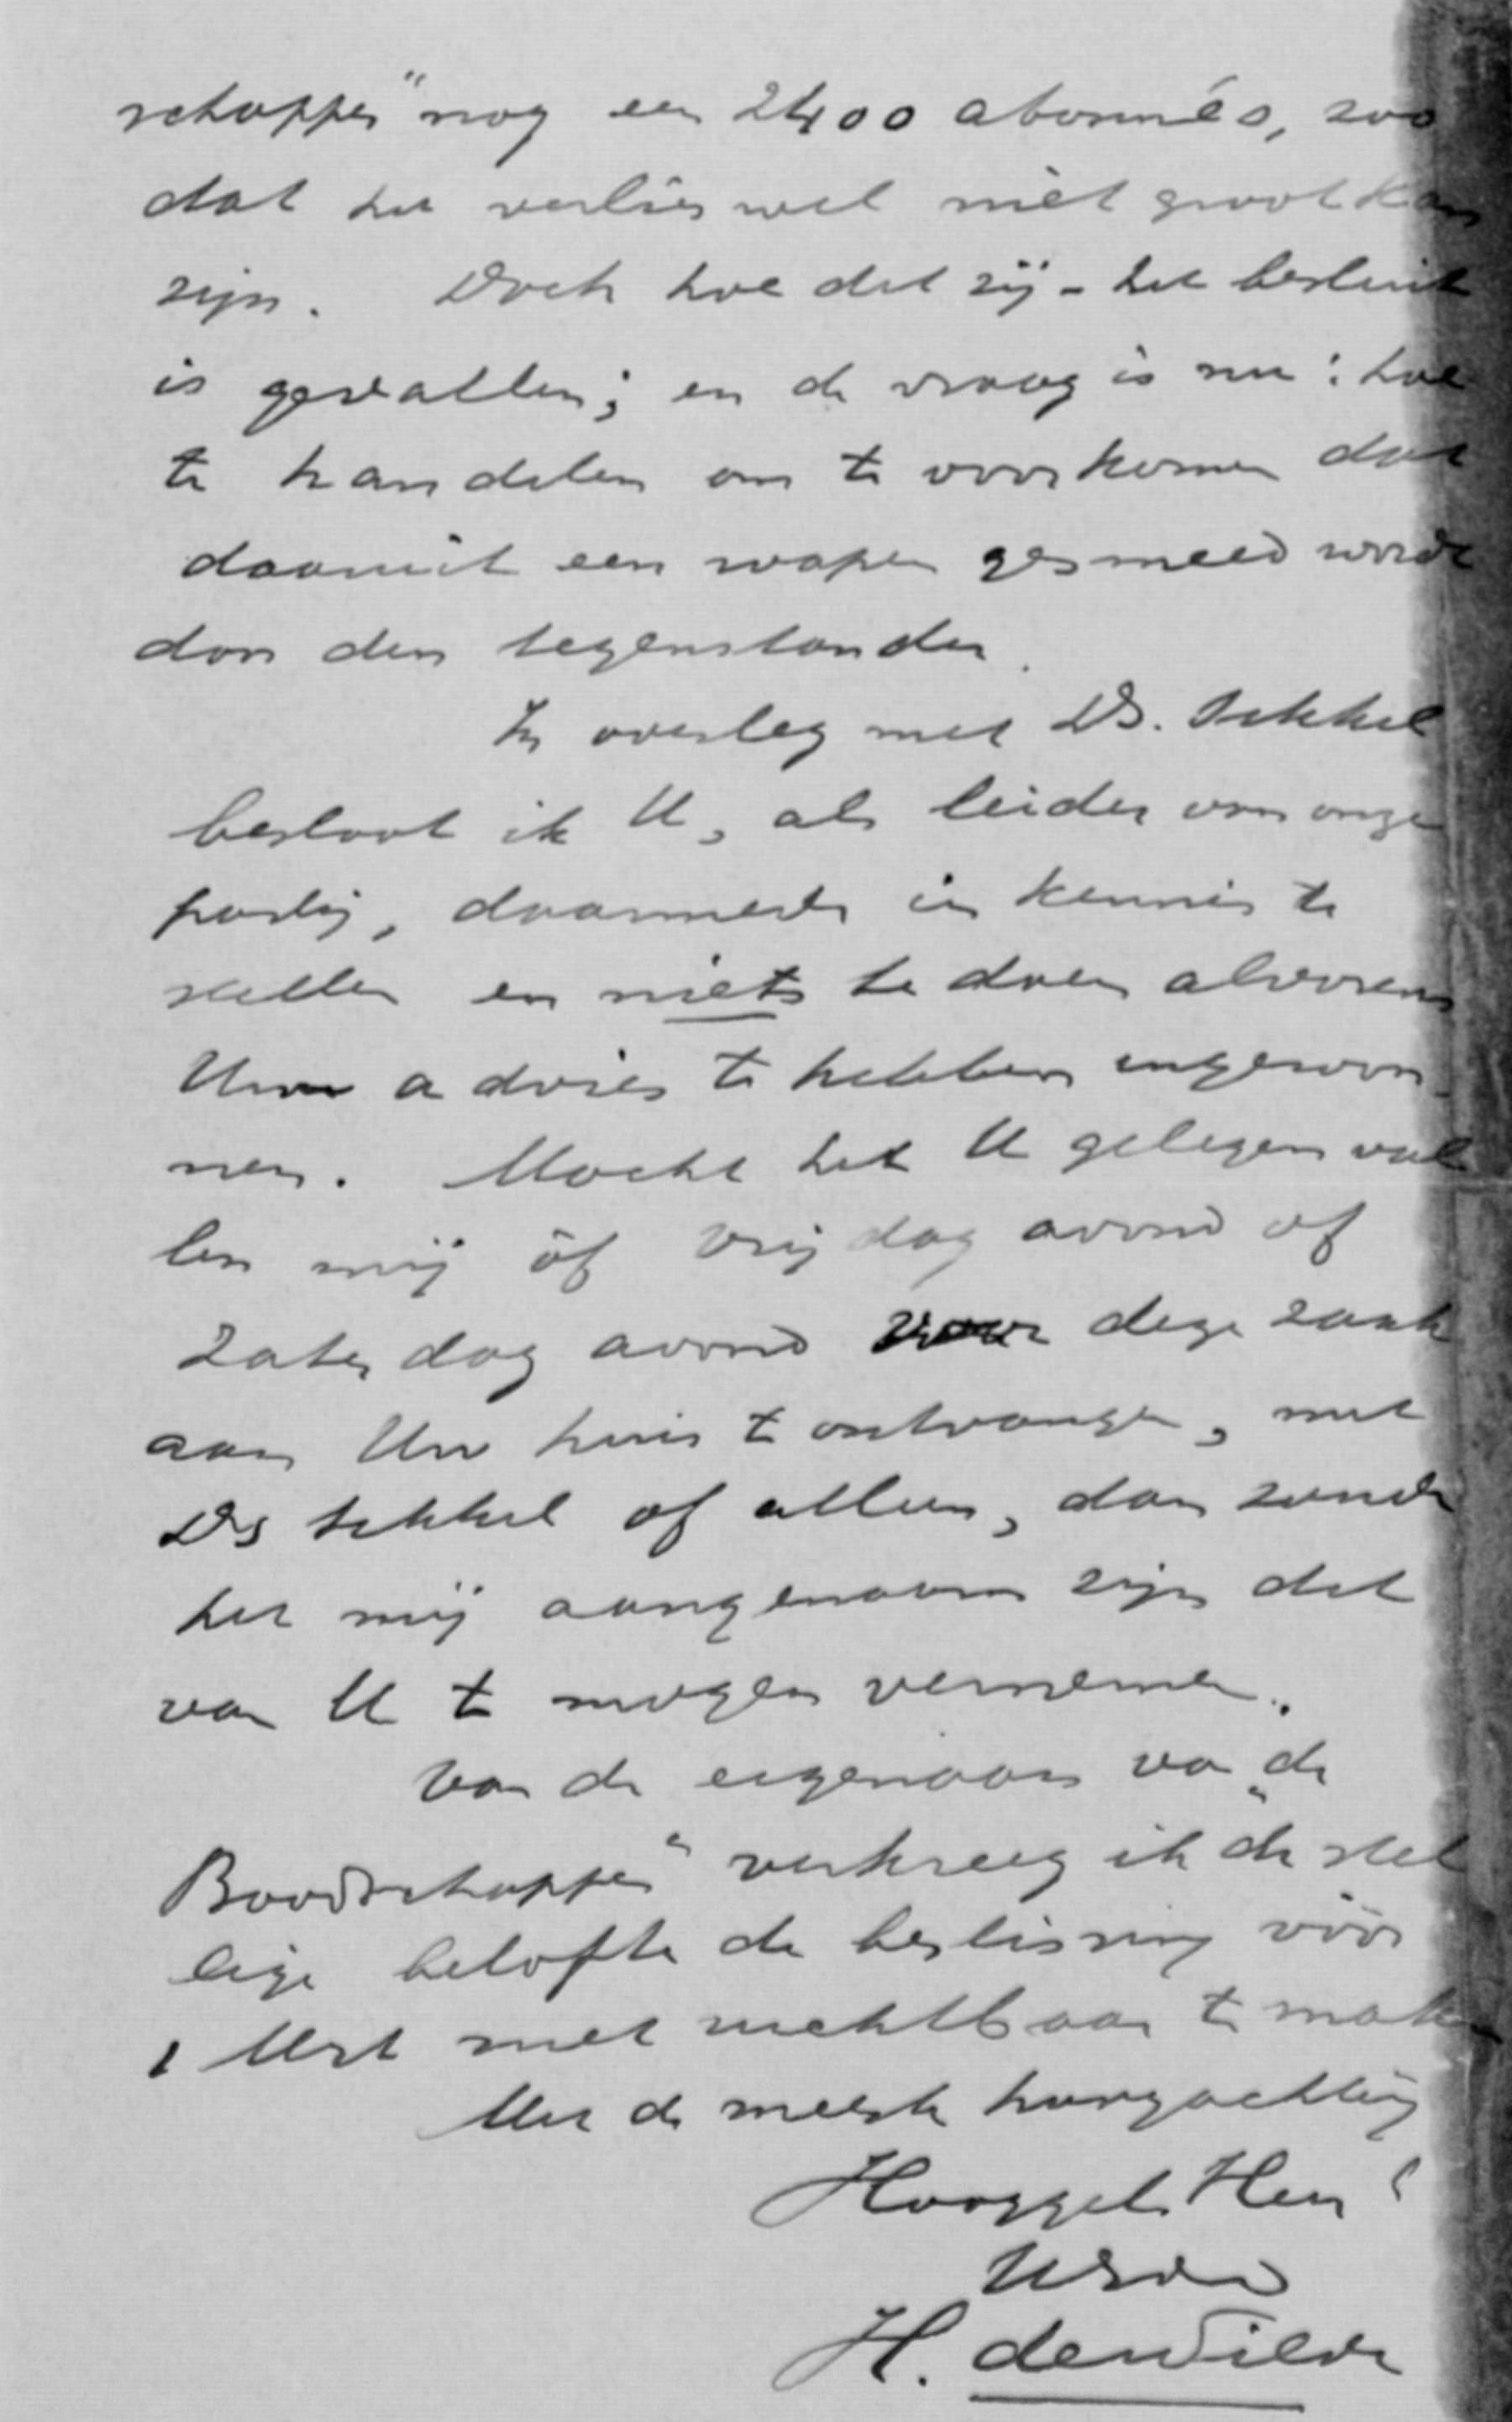 schapper" nog een 2400 abonnés, zoo
dat het verlies wel niet groot kan
zijn. Doch hoe dit zij - het besluit
is gevallen; en de vraag is nu: hoe
te handelen om te voorkomen dat
daaruit een wapen gesmeed wordt
door den tegenstander.
In overleg met Ds. Sikkel
besloot ik U, als leider van onze
partij, daarmede in kennis te
stellen en niets te doen alvorens
Uw advies te hebben ingewon-
nen. Mocht het U gelegen val
len mij òf Vrijdag avond of
Zaterdag avond voor deze zaak
aan Uw huis te ontvangen, met
Ds Sikkel of alleen, dan zoude
het mij aangenaam zijn dit
van U te mogen vernemen.
Van de eigenaars van „de
Boodschapper" verkreeg ik de stel
lige belofte de beslissing vóór
1 Mrt niet ruchtbaar te maken
Met de meeste hoogachting
Hooggel. Heer
UEdw
H. de Wilde